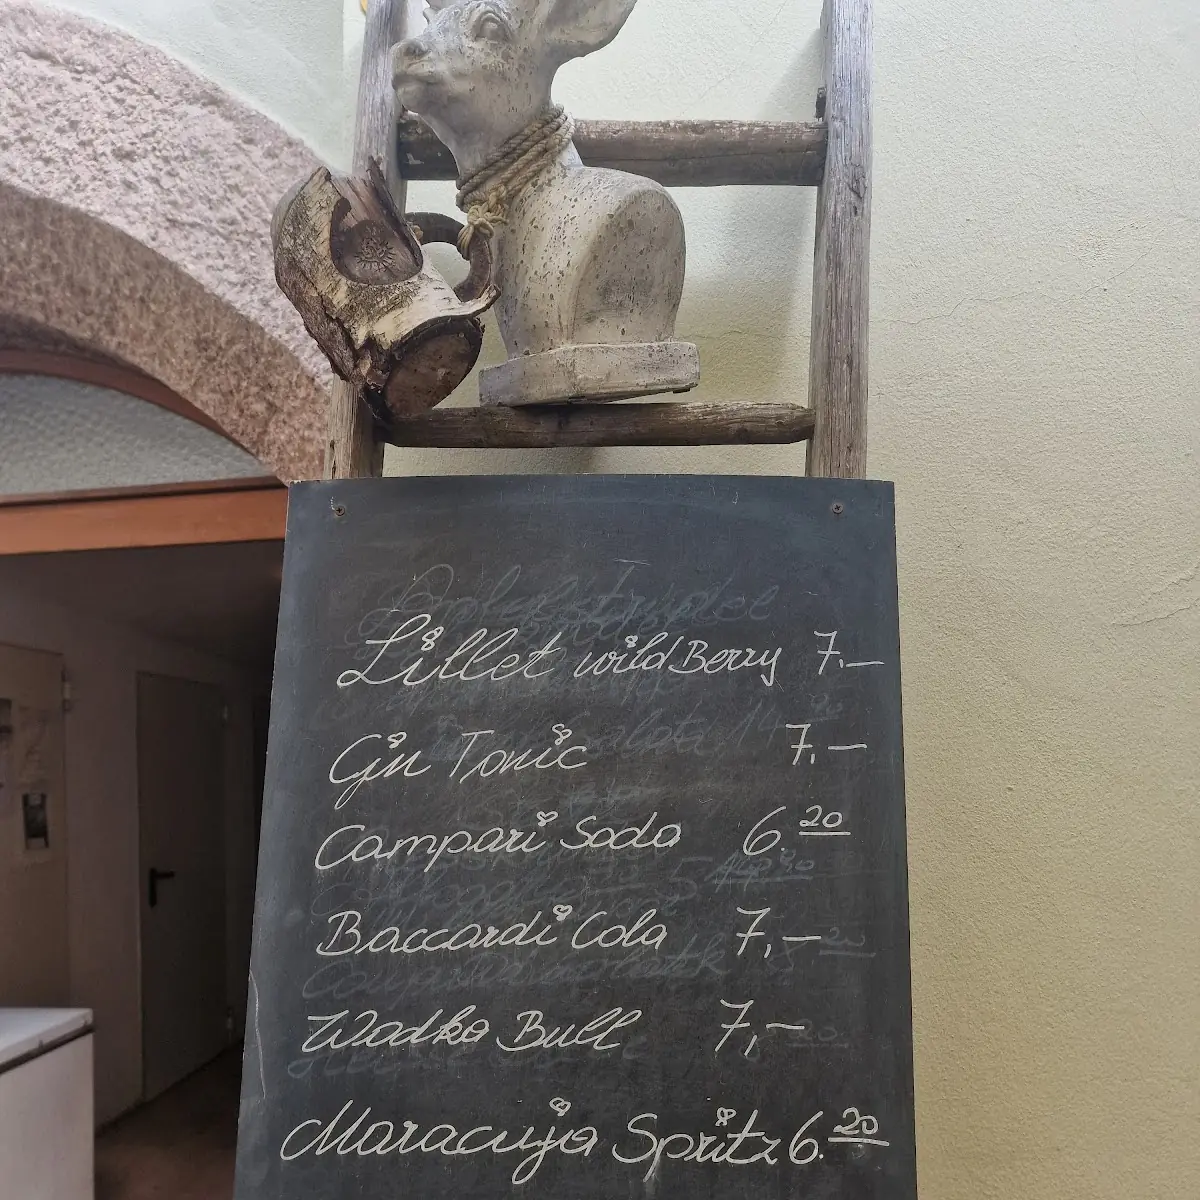 Lillet wild Berry 7.—
Gin Tonic 7.—
Campari Soda 6.20
Baccardi Cola 7,—
Wodka Bull 7,—
Maracuja Spritz 6.20